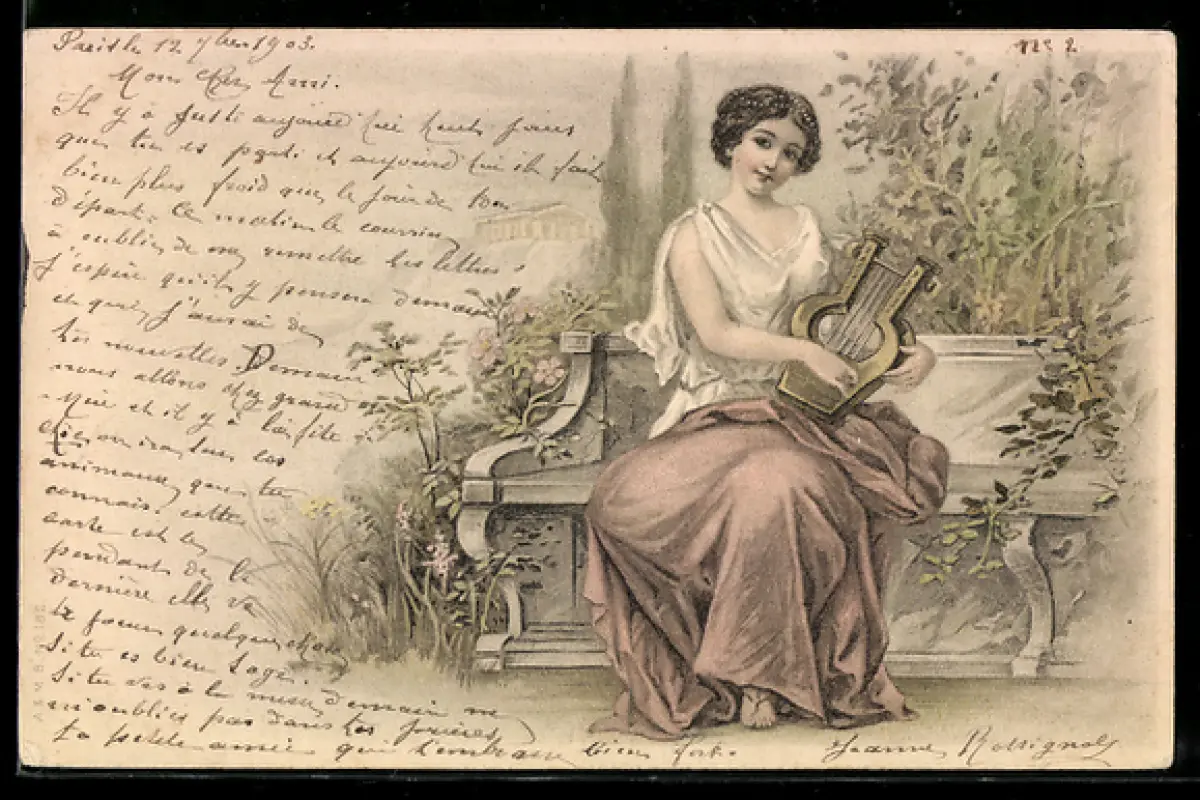 Paris le 12 7bre 1903.
No 2
Mon cher Ami.
Il y a juste aujourd'hui huit jours
que tu es parti et aujourd'hui il fait
bien plus froid que le jour de ton
départ. Ce matin le courrier
à oublier de me remettre les lettres
j'espère qu'il y pensera demain
et que j'aurai de
tes nouvelles. Demain
nous allons chez grand
Mère et il y a la fête
animaux que tu
connais. cette
carte est le
pendant de la
dernière elle va
te faire quelque chose
Si tu es bien sage.
Si tu vas à la messe demain ne
m'oublies pas dans tes prières
ta petite amie qui t'embrasse bien fort.
Jeanne Rossignol